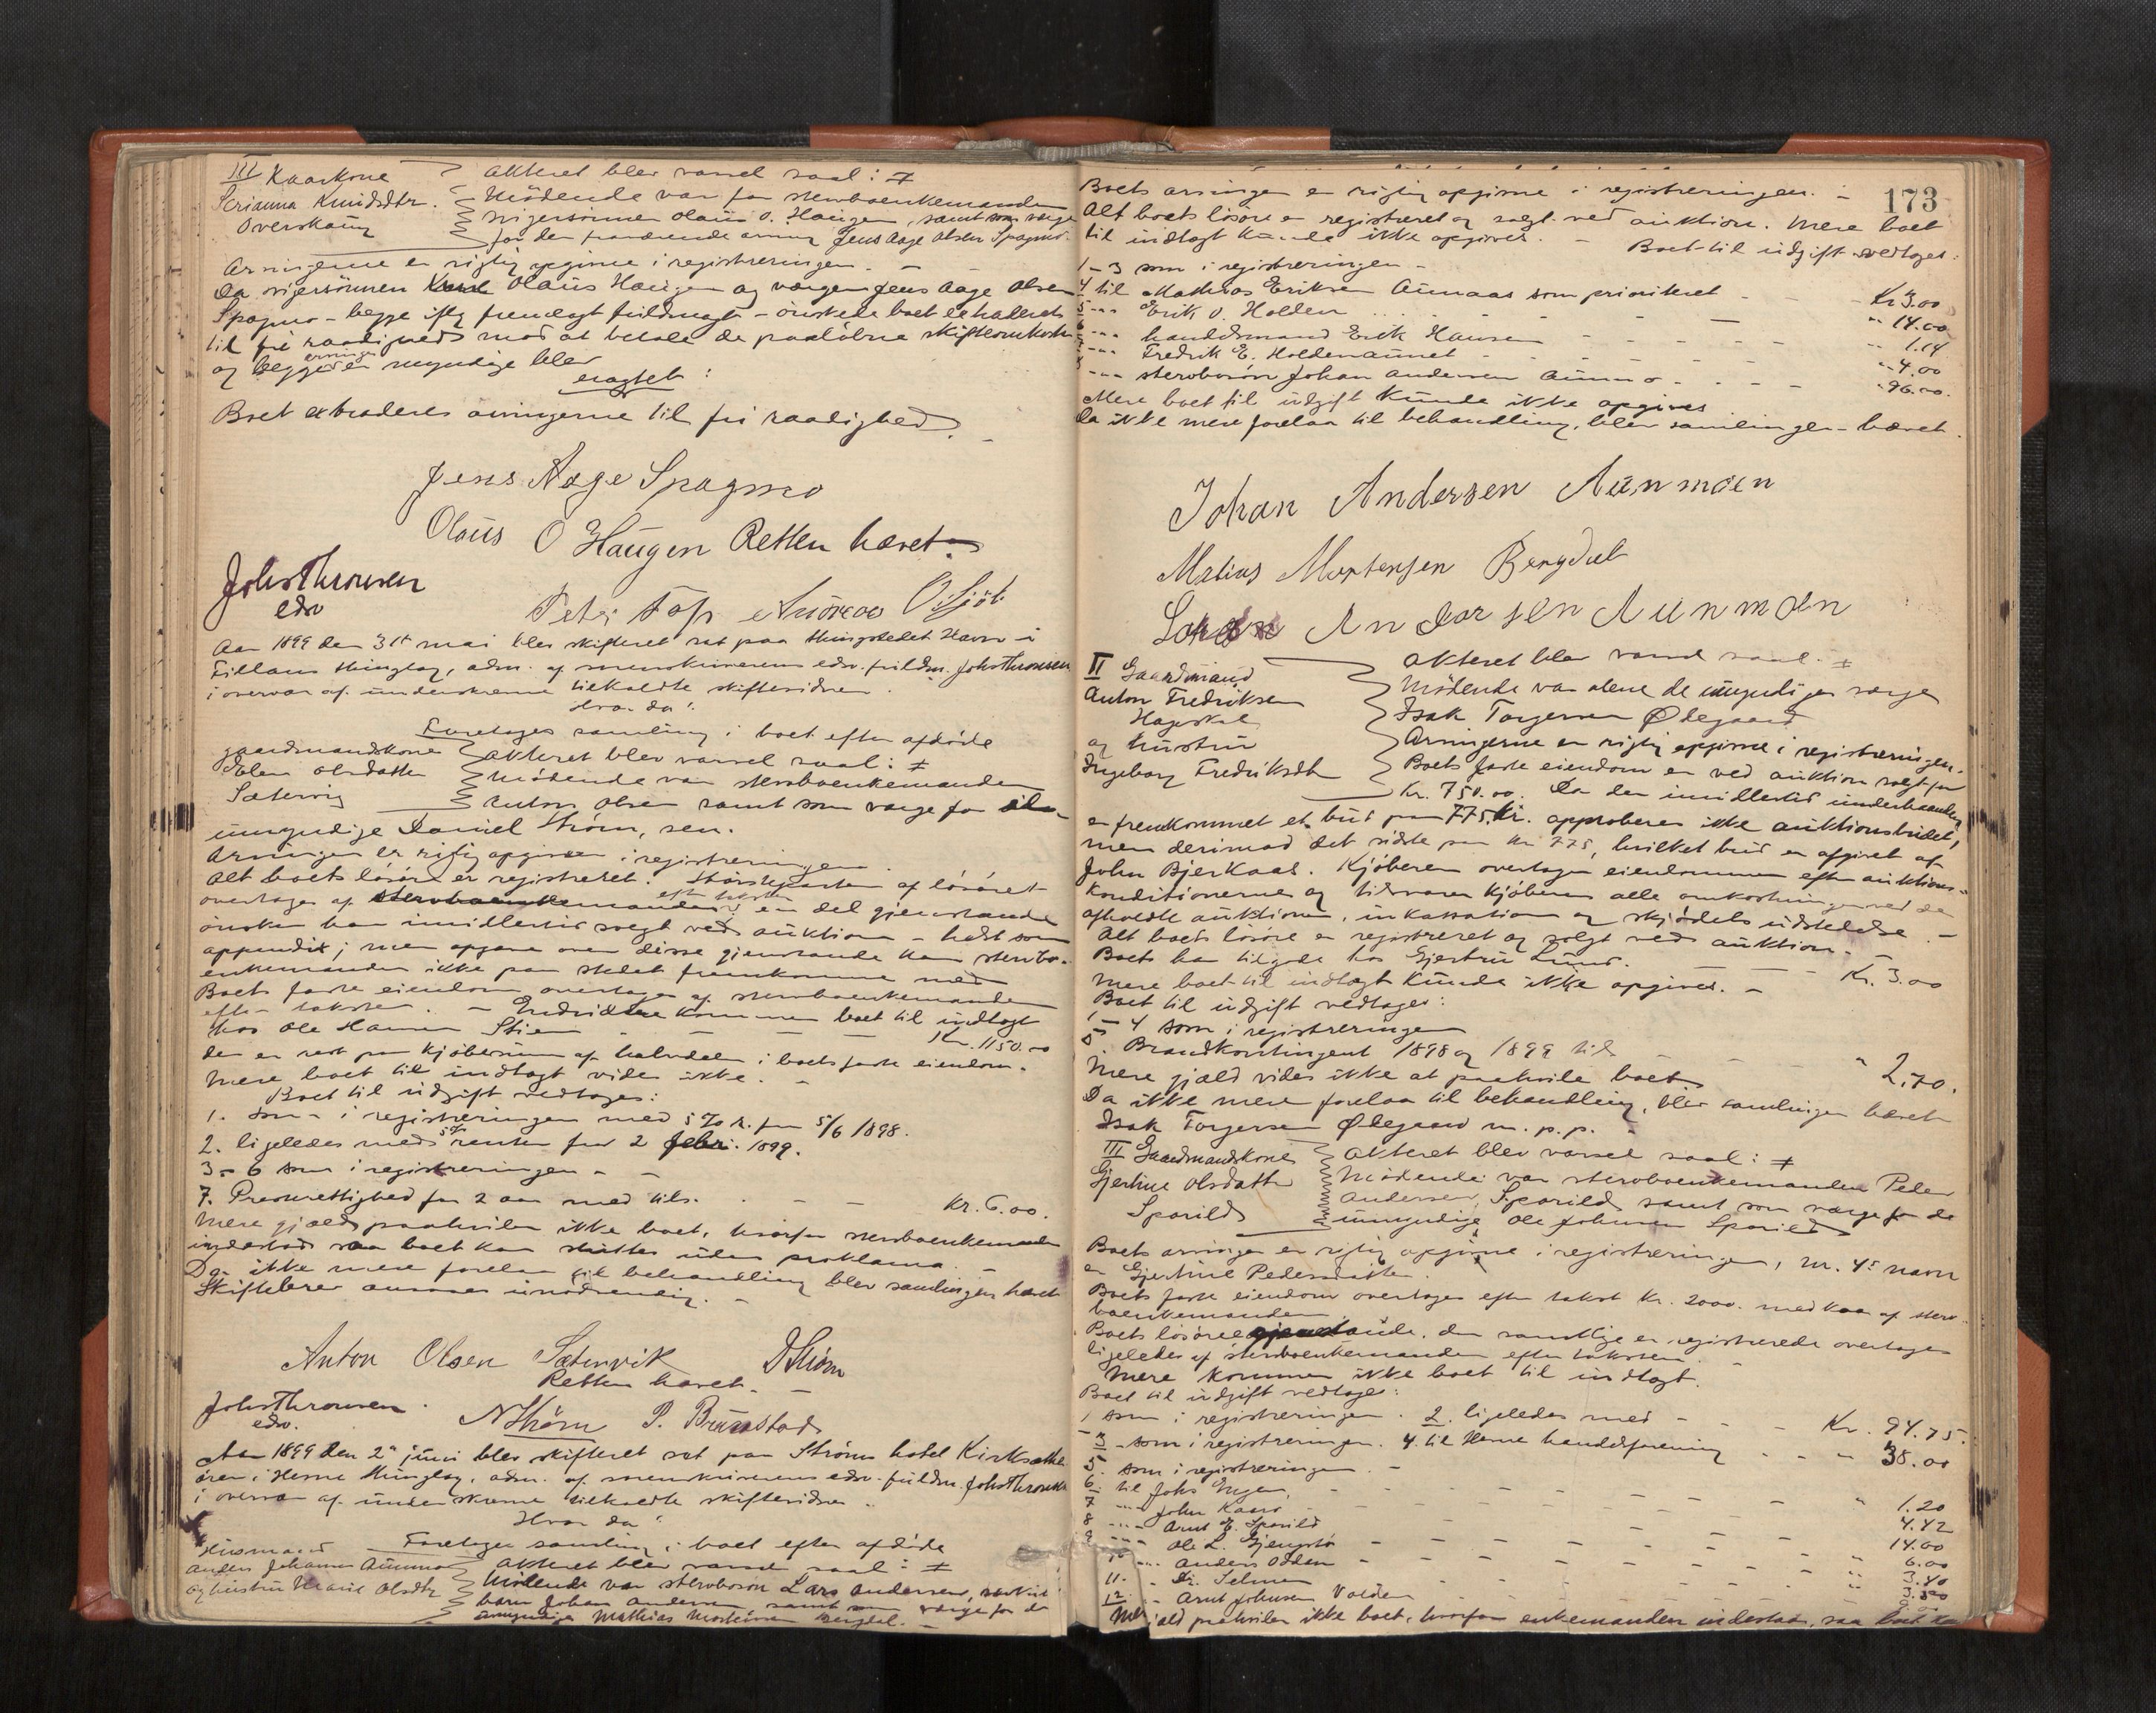 III Kaarkone
Serianna Knudsdtr.
Overskaug
Akteret blev varsel saal: ≠
Mödende var for stervboenkemanden
svigersönnen Olaüs O. Haugen, samt som værge
for den fraværende arving Jens Aage Olsen Spagmo.
Arvingerne er rigtig opgivne i registreringen. —
Da svigersönnen Olaüs Haugen og værgen Jens Aage Olsen
Spagmo - begge ifly fremlagt fuldmagt - önskede boet extraderet
til fri raadighed mod at betale de paalöbne skifteomkostn.
og begge arvinger er myndige blev
eragtet:
Boet extraderes arvingerne til fri raadighed. —
Jens Aage Spagmo
Olaüs O Haügen Retten hævet. —
Johs Thronsen
edsv
Peter Foss Andreas O. Sjöl
Aar 1899 den 31te mai blev skifteret sat paa thingstedet Havn i
Fillans thinglag, adm. af sorenskriverens edsv. fuldm. Johs Thronsen
i overvær af underskrevne tilkaldte skiftevidner.
Hvor da:
Foretoges samling i boet efter afdöde
gaardmandskone
Elen Olsdatter
Sætervig
Akteret blev varsel saal: ≠
Mödende var stervboenkemanden
Anton Olsen samt som værge for den
umyndige Daniel Ström, sen.
Arvingen er rigtig opgiven i registreringen
Alt boets lösöre er registreret. Störsteparten af lösöret
overtages af stervboenkemanden efter taksten en del gjenstande
önsker han imidlertid solgt ved auktion - helst som
appendix; men opgave over disse gjenstande kan stervbo-
enkemanden ikke paa stedet fremkomme med
Boets faste eiendom overtages af stervboenkemanden
efter taksten. — Endvidere kommer boet til indtægt
hos Ole Hansen Stien — — — Kr. 1150.00
der er rest paa kjöbesum af halvdelen i boets faste eiendom.
Mere boet til indtægt vides ikke. —
Boet til udgift vedtoges:
1. som i registreringen med 5 % r. fra 5/6 1898.
2. ligeledes med 5% renter fra 2 febr. 1899.
3-6 som i registreringen - -
7. Presterettighed for 2 aar med tils. - — — Kr. 6.00.
Mere gjæld paahviler ikke boet, hvorfor stervboenkemanden
indestod saa boet kan sluttes uden proklama. —
Da ikke mere forelaa til behandling blev samlingen hævet
Skiftebrev ansees unödvendig. —
Anton Olsen Sætervik DStröm
Retten hævet. —
Johs Thronsen.
edsv.
NStröm P. Brünstad
Aar 1899 den 2n juni blev skifteret sat paa Ströms hotel Kirksæter-
ören i Hevne thinglag, adm. af sorenskriverens edsv. fuldm. Johs Thronsen
i overvær af underskrevne tilkaldte skiftevidner.
Hvor da:
Foretoges samling i boet efter afdöde
Husmand
Anders Johansen Aünmo
og hustru Marie Olsdtr
Akteret blev varsel saal: ≠
Mödende var stervbosön Lars Andersen,
Johan Andersen samt som værge for de
umyndige Mathias Mortensen Bergdal. —
173
Boets arvinger er rigtig opgivne i registreringen. —
Alt boets lösöre er registreret og solgt ved auktion. Mere boet
til indtægt kunde ikke opgives. — Boet til udgift vedtoges:
1-3 som i registreringen —
4 til Mathias Eriksen Aünaas som prioriteret - - Kr 3.00
5 --- Erik O. Holden - - - " 14.00
6 --- handelsmand Erik Hansen - - - " 1.14
7 --- Fredrik E. Holdenaünet - - - " 4.00
8 --- stervbosön Johan Andersen Aünmo - - - " 96.00.
Mere boet til udgift kunde ikke opgives
Da ikke mere forelaa til behandling, blev samlingen hævet.
Johan Andersen Aünmoen
Matias Mortensen Bergdal
Lars Andersen Aünmoen
II Gaardmand
Anton Fredriksen
Hageskal
og hustru
Ingeborg Fredriksdtr
Akteret blev varsel saal. ≠
Mödende var alene de umyndiges værge
Isak Torgersen Ødegaard
Arvingerne er rigtig opgivne i registreringen.
Boets faste eiendom er ved auktion solgt for
Kr. 750.00. Da der imidlertid underhaanden
er fremkommet et bud paa 775 Kr. approberes ikke auktionsbudet,
men derimod det sidste paa Kr 775, hvilket bud er afgivet af
John Bjerkaas. Kjöberen overtager eiendommen efter auktions-
konditionerne og tilsvarer kjöberen alle omkostninger ved de
afholdte auktioner, inkassation og skjödets udstedelse. —
Alt boets lösöre er registreret og solgt ved auktion. —
Boet har tilgode hos Gjertru Lund. — — — Kr. 3.00
Mere boet til indtægt kunde ikke opgives. —
Boet til udgift vedtoges:
1-4 som i registreringen
5 Brandkontingent 1898 og 1899 tils — — " 2.70.
Mere gjæld vides ikke at paahvile boet
Da ikke mere forelaa til behandling, blev samlingen hævet
Isak Torgersen Ødegaard m. p. p. -
III Gaardmandskone
Gjertine Olsdatter
Sparild
Akteret blev varsel saal: ≠
Mödende var stervboenkemanden Peder
Andersen Sparild samt som værge for de
umyndige Ole Johnsen Sparild
Boets arvinger er rigtig opgivne i registreringen, nr. 4s navn
er Gjertine Pedersdatter.
Boets faste eiendom overtages efter takst Kr. 2000. med kaar af sterv-
boenkemanden
Boets lösöregjenstande, der samtlige er registrerede overtages
ligeledes af stervboenkemanden efter taksten.
Mere kommer ikke boet til indtægt.
Boet til udgift vedtoges:
1 som i registreringen. 2. ligeledes med - - - Kr. 94.75.
3 - som i registreringen. 4. til Hevne handelsforening - - " 38.00
5. som i registreringen. -
6. til Johs Engen, - - - " 1.20
7 --- John Kaarø - - - 4.42
8 --- Arnt E. Sparild - - - 14.00
9 --- Ole L. Gjengstö - - - " 6.00
10 --- Anders Odden - - - " 3.40
11. - Dr. Selmer - - - "
12 - Arnt Johnsen Volden - - -
gjæld paahviler ikke boet, hvorfor enkemanden indestod, saa boet kan